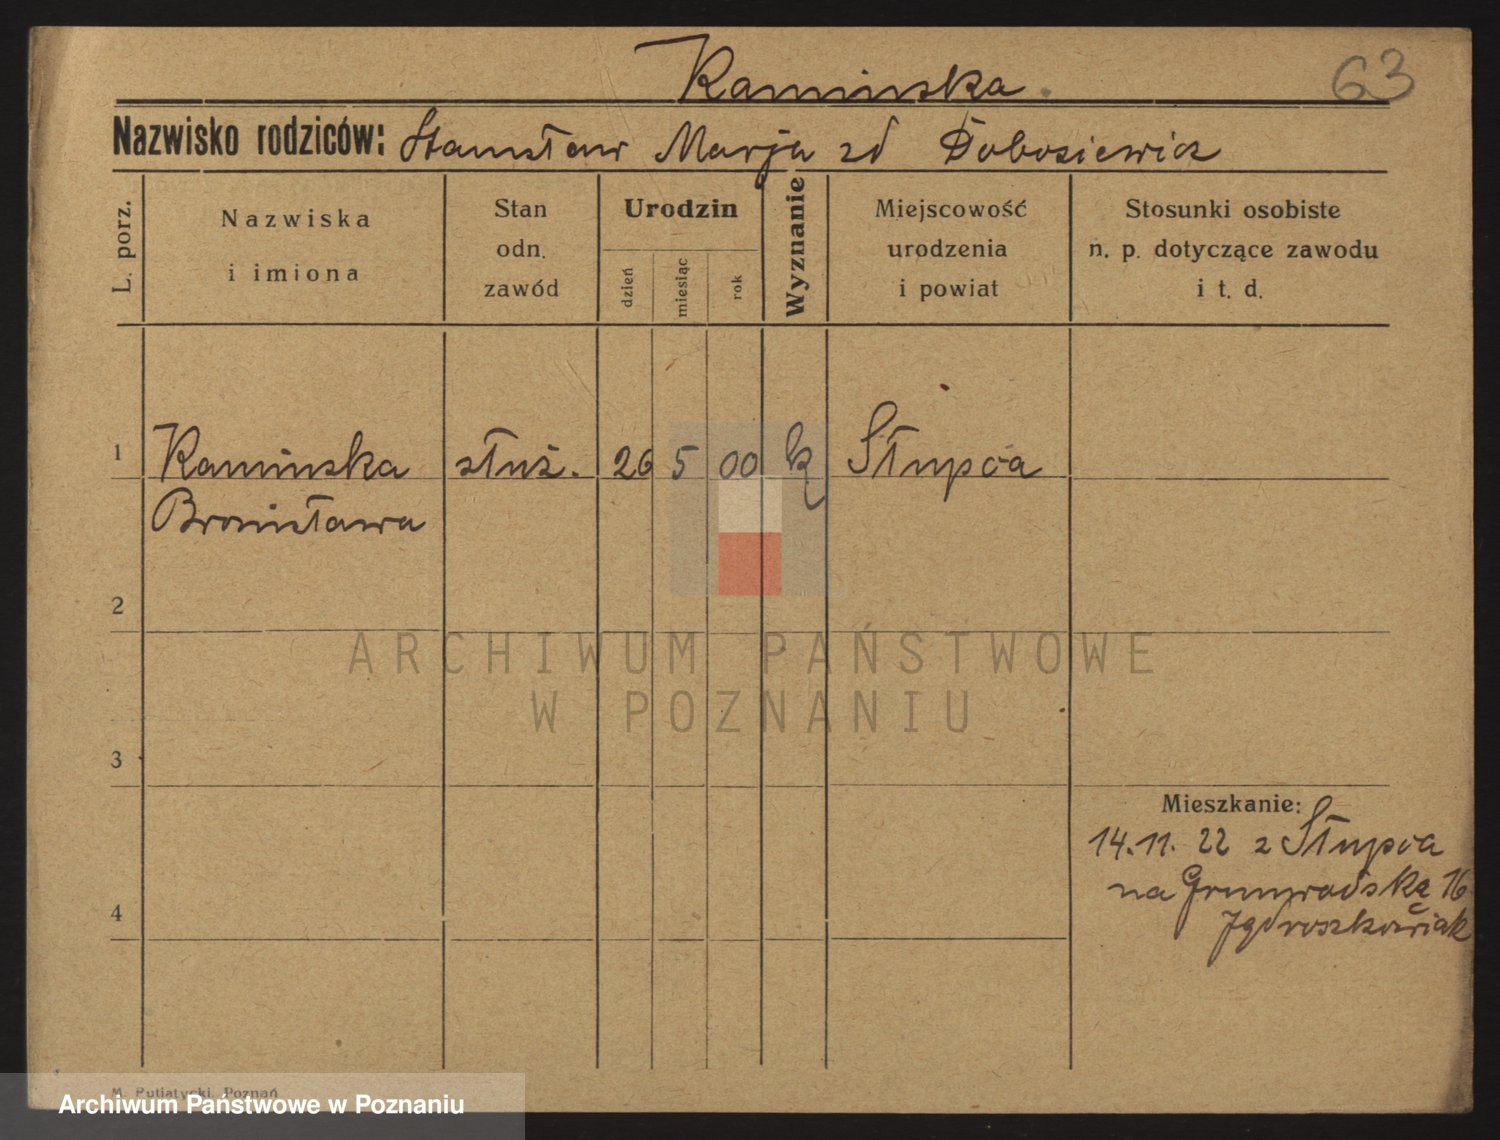 Kaminska.
63
Nazwisko rodziców: Stanisław Marja zd Dobosiewicz
L. porz.
Nazwiska
i imiona
Stan
odn.
zawód
Urodzin
dzień
miesiąc
rok
Wyznanie
Miejscowość
urodzenia
i powiat
Stosunki osobiste
n. p. dotyczące zawodu
i t. d.
1 Kaminska służ. 26 5 00 k Słupca
Bronisława
2
ARCHIWUM PAŃSTWOWE
W POZNANIU
3
Mieszkanie:
14.11. 22 z Słupca
4
na Grunwaldską 16
M. Putiatycki, Poznań
Archiwum Państwowe w Poznaniu